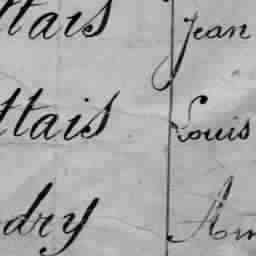 ttais Jean
ttais Louis
dry Am